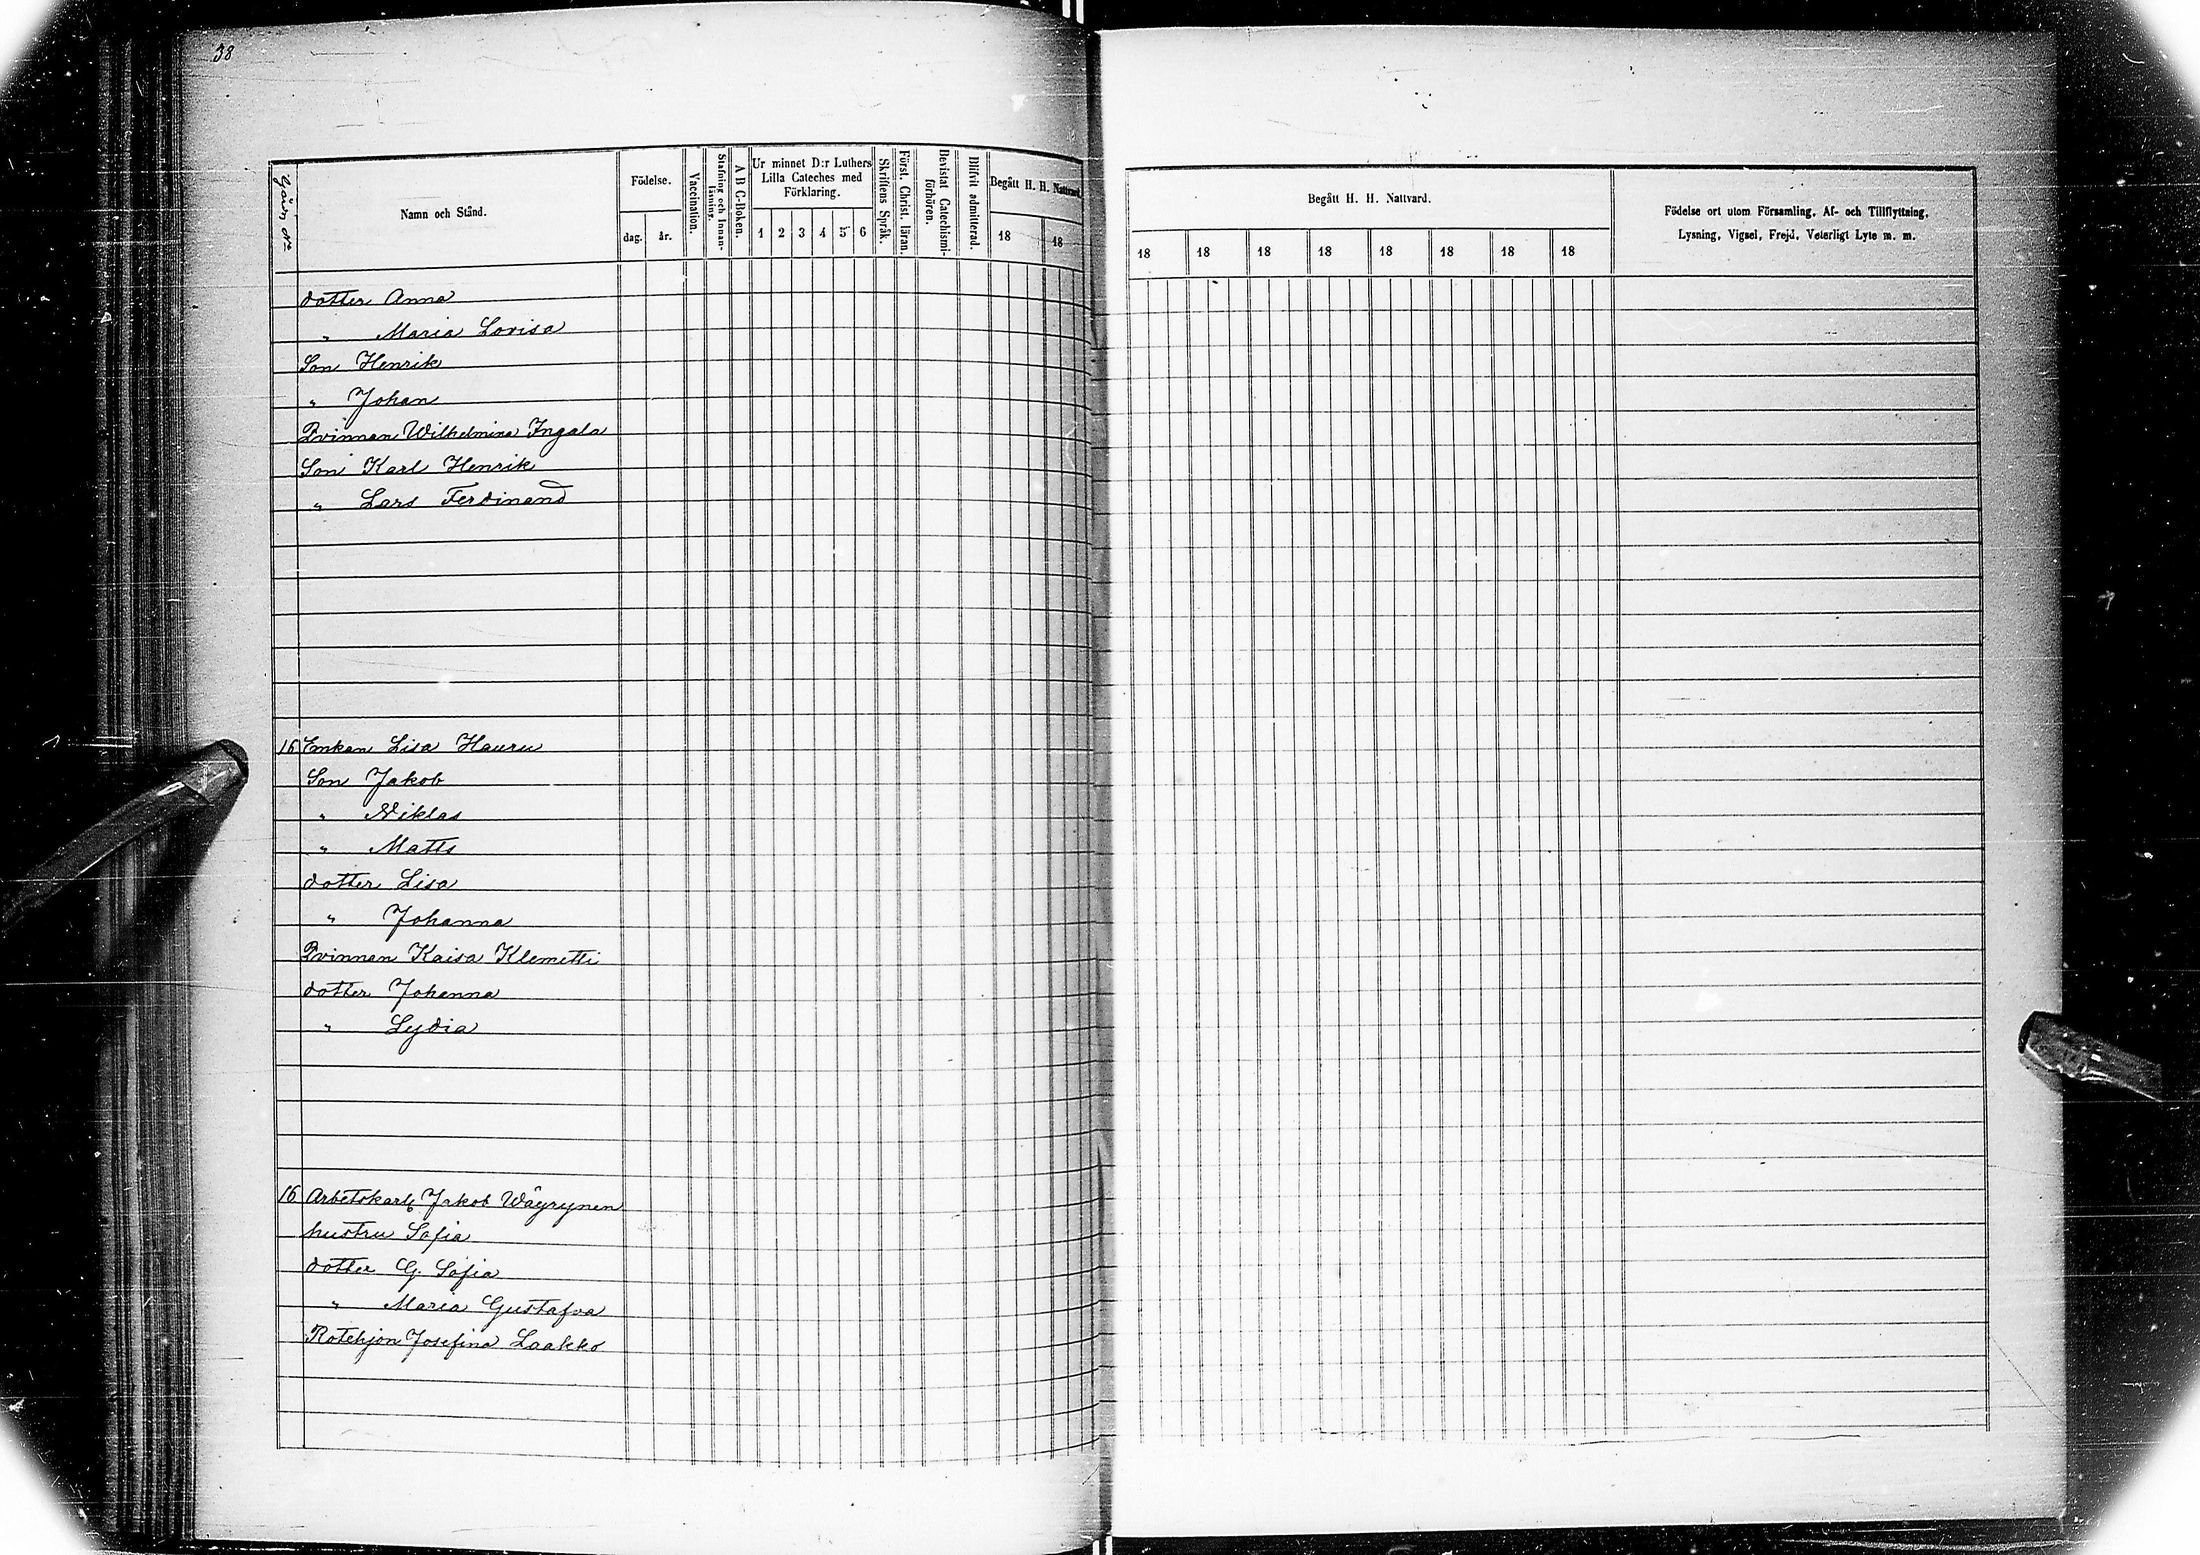 38
Gård No
Namn och Stånd.
Födelse.
dag. år.
Vaccination.
Stafning och Innan-
läsning.
A B C-Boken.
Ur minnet D:r Luthers
Lilla Cateches med
Förklaring.
1 2 3 4 5 6
Skriftens Språk.
Först. Christ. läran.
Bevistat Catechismi-
förhören.
Blifvit admitterad.
Begått H. H. Nattvard.
18 18
dotter Anna
" Maria Lovisa
Son Henrik
" Johan
Qvinnan Wilhelmina Ingala
Son Karl Henrik
" Lars Ferdinand
16 Enkan Lisa Hauru
Son Jakob
" Niklas
" Matts
dotter Lisa
" Johanna
Qvinnan Kaisa Klemetti
dotter Johanna
" Lydia
16 Arbetskarl Jakob Wäyrynen
hustru Sofia
dotter G. Sofia
" Maria Gustafva
Rotehjon Josefina Laakko
Begått H. H. Nattvard.
18 18 18 18 18 18 18 18
Födelse ort utom Församling, Af- och Tillflyttning,
Lysning, Vigsel, Frejd, Veterligt Lyte m. m.